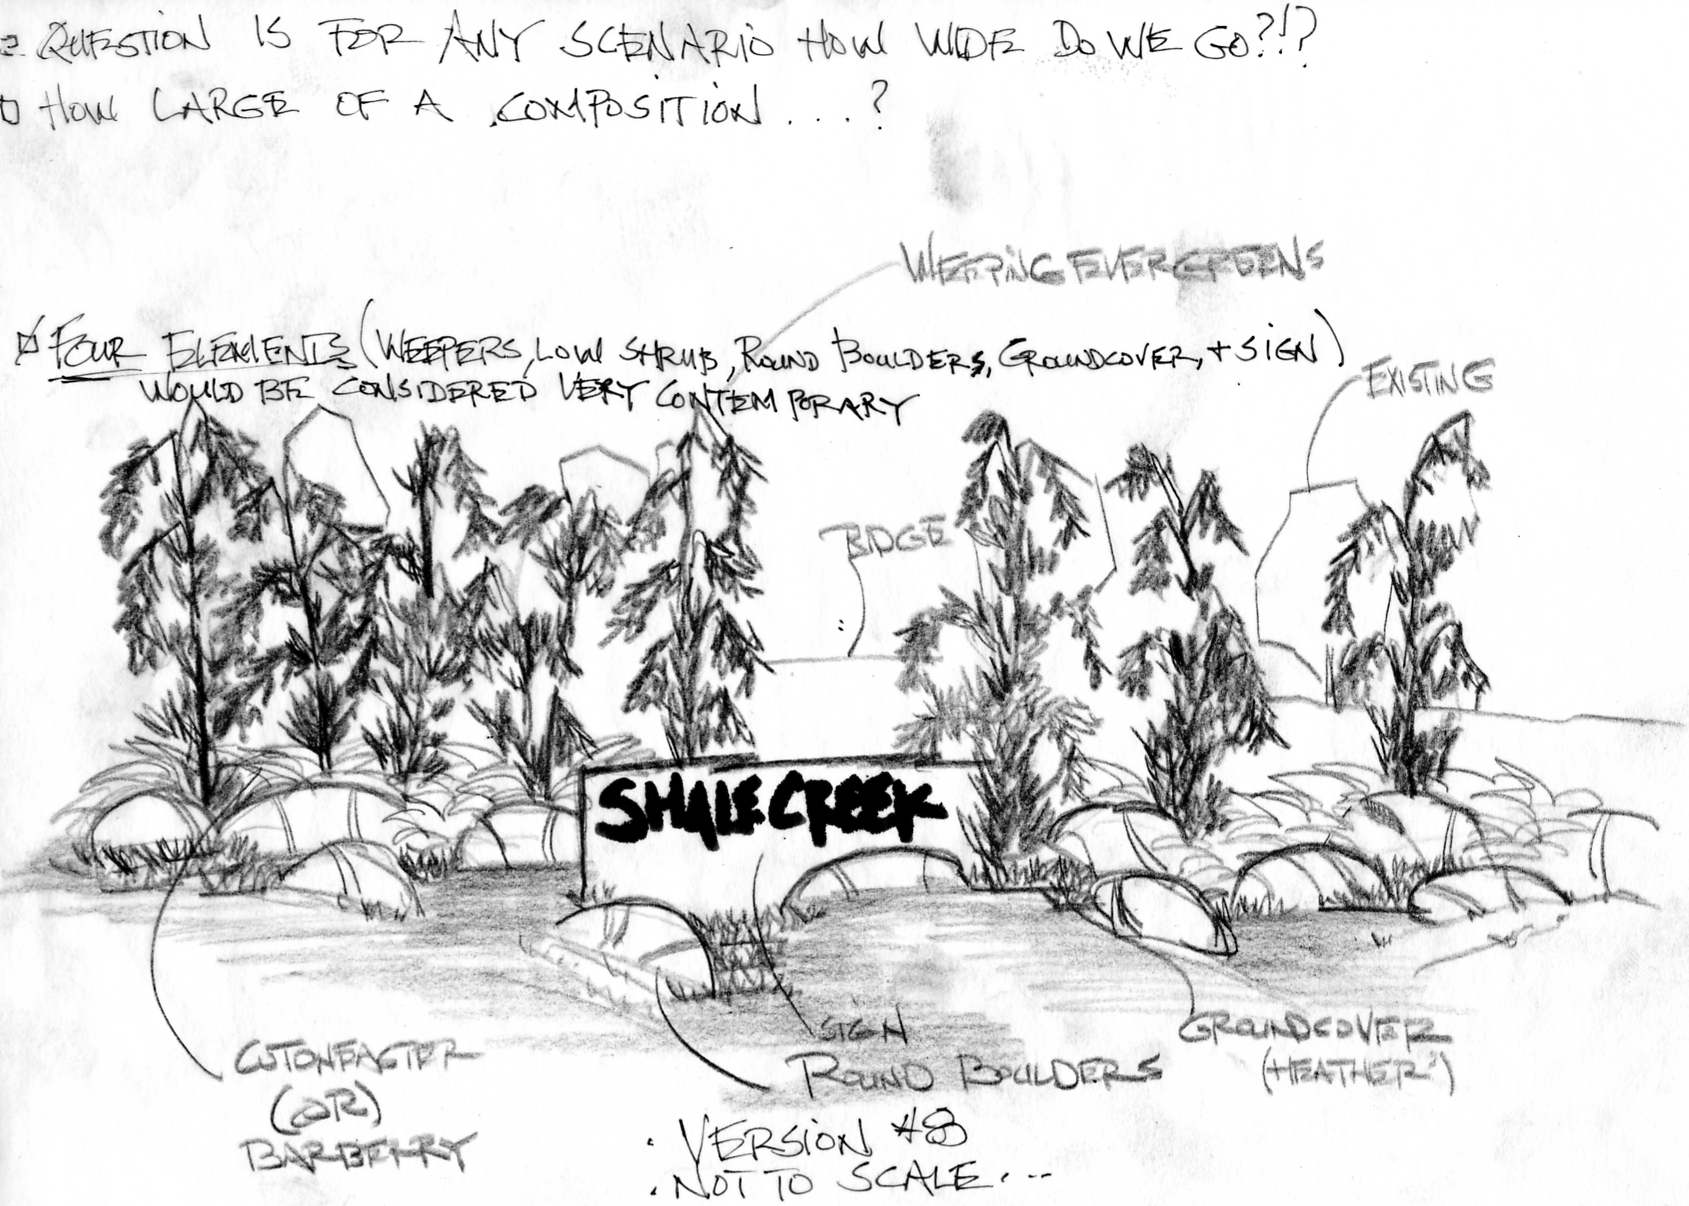 QUESTION IS FOR ANY SCENARIO HOW WIDE DO WE GO?!?
HOW LARGE OF A COMPOSITION...?
WEEPING EVERGREENS
FOUR ELEMENTS (WEEPERS, LOW SHRUB, ROUND BOULDERS, GROUNDCOVER, + SIGN)
WOULD BE CONSIDERED VERY CONTEMPORARY
EXISTING
BIDGE
SHALE CREEK
SIGN
GROUNDCOVER
(HEATHER?)
COTONEASTER
(OR)
BARBERRY
ROUND BOULDERS
VERSION #8
NOT TO SCALE...